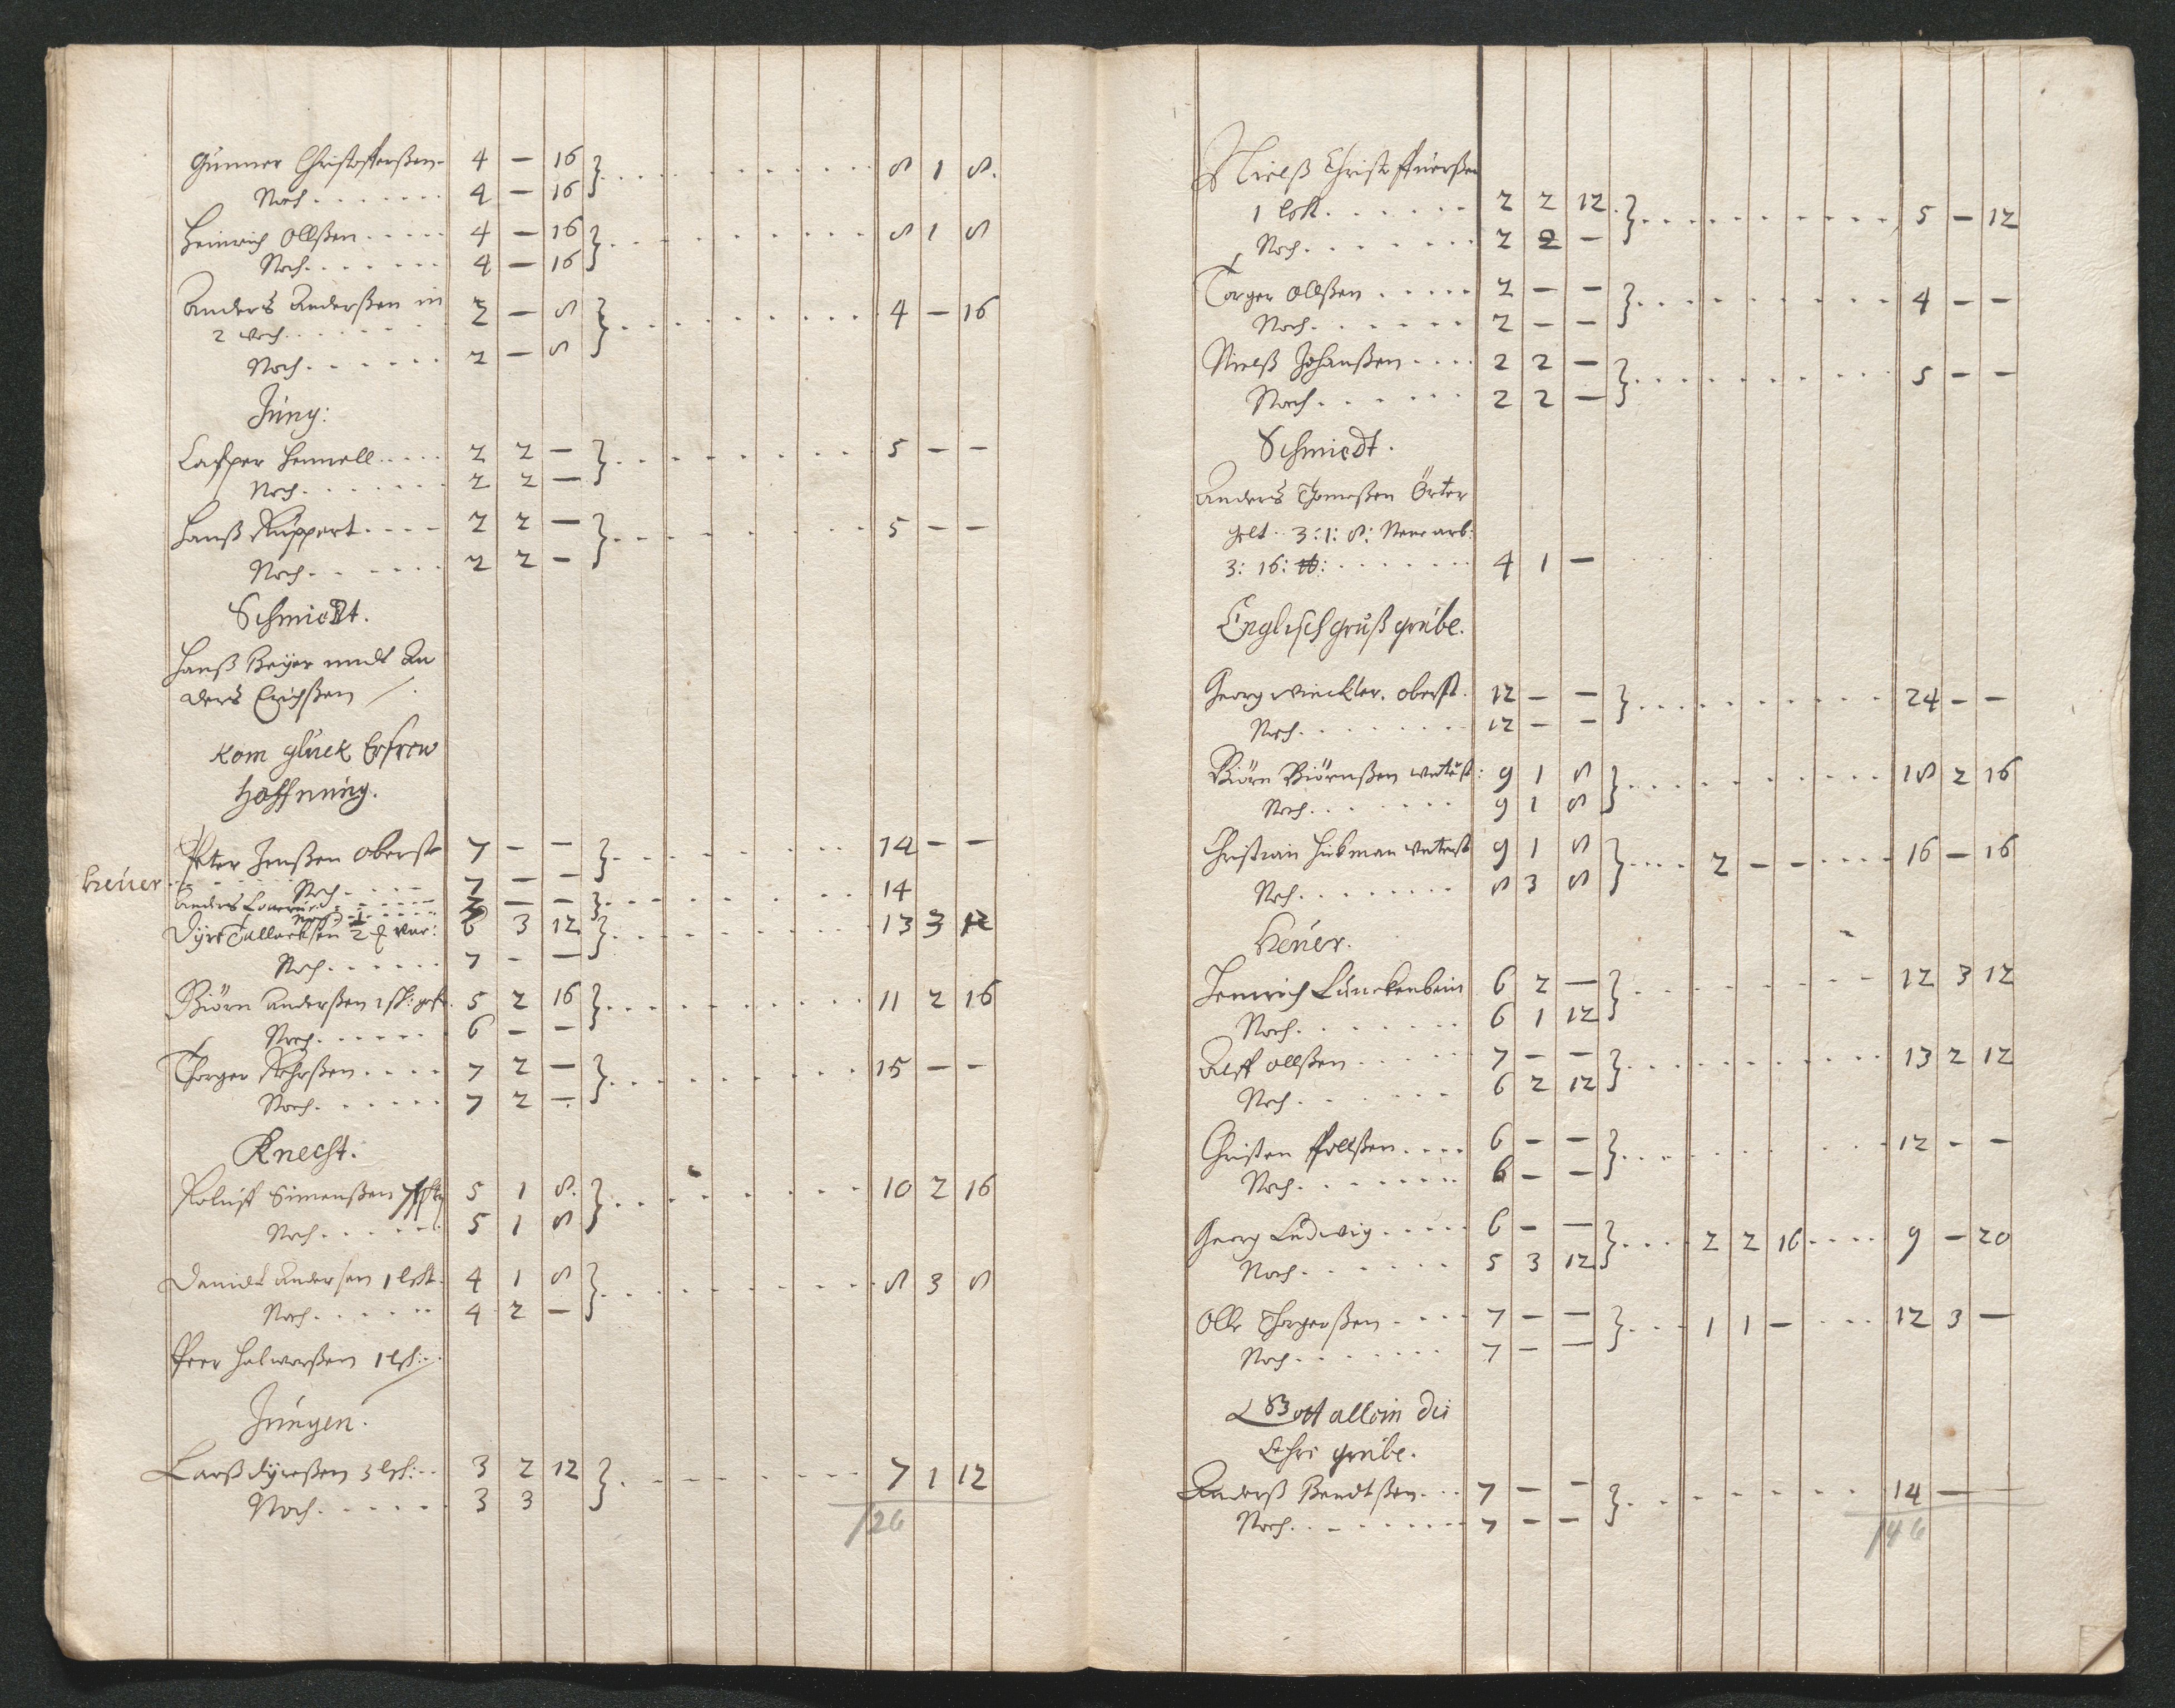 Gunner Christofferßen 4 — 16 } 8 1 8.
Noch 4 — 16
Heinrich Olßen 4 — 16 } 8 1 8
Noch 4 — 16
Anders Anderßen in
2 woch 2 — 8 } 4 — 16
Noch 2 — 8
Jung:
Casper Hennell 2 2 — } 5 — —
Noch 2 2 —
Hanß Ruppert 2 2 — } 5 — —
Noch 2 2 —
Schmiedt.
Hanß Beijer undt An
ders Erichßen
Kom glück Erfrew
Hoffnung.
Peter Jenßen oberst 7 — — } 14 — —
heuer
Noch 7 — —
Anders 7 — — } 14
Noch
Dyre Tallacksen 6 3 12 } 13 3 12
Noch 7 — —
Biörn Anderßen 5 2 16 } 11 2 16
Noch 6 — —
Thorger 7 2 — } 15 — —
Noch 7 2 —
Knecht.
Roluff Simenßen 5 1 8. } 10 2 16
Noch 5 1 8
Daniel Andersen 1 4 1 8 } 8 3 8
Noch 4 2 —
Peer Halworßen 1
Jungen.
Larß Dyreßen 3 3 2 12 } 7 1 12
Noch 3 3
126
Nielß Christoffuerßen
1 2 2 12. } 5 — 12
Noch 2 2 —
Torger Olßen 2 — — } 4 — —
Noch 2 — —
Nielß Johanßen 2 2 — } 5 — —
Noch 2 2 —
Schmiedt.
Anders Thomeßen Örter
gelt 3:1:8: New arb:
3: 16: 4 1 —
Englisch gruß grube.
Georg Winckler. oberst. 12 — — } 24 — —
Noch 12 — —
Biörn Biörnßen unterst: 9 1 8 } 18 2 16
Noch 9 1 8
Christian Hickman unterst 9 1 8 } 2 — — 16 — 16
Noch 8 3 8
Heuer.
Henrich Lünckenbein 6 2 — } 12 3 12
Noch 6 1 12
Alff Olßen 7 — — } 13 2 12
Noch 6 2 12
Christen Pollßen 6 — — } 12 — —
Noch 6 — —
Georg Ludwig 6 — — } 2 2 16 9 — 20
Noch 5 3 12
Olle Thorgerßen 7 — — } 1 1 — 12 3 —
Noch 7 — —
Gott allein die
Ehre grube.
Anderß Bendtßen 7 — — } 14 —
Noch 7 — —
146